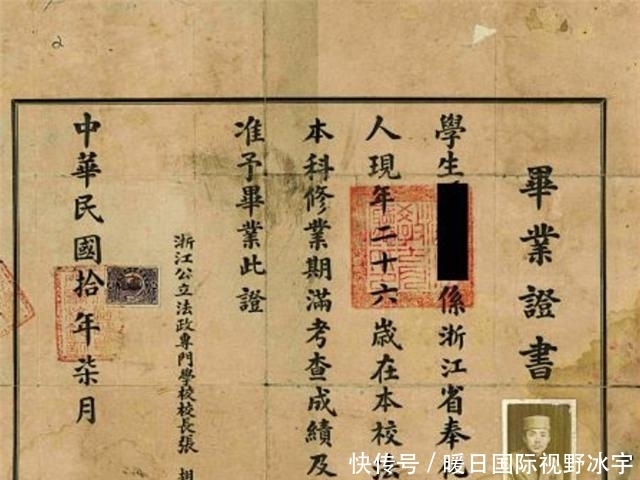 2
畢業證書
學生係浙江省奉化
人現年二十六歲在本校法
本科修業期滿考查成績及
准予畢業此證
浙江公立法政專門學校校長張
中華民國拾年柒月
快传号 / 暖日国际视野冰宇